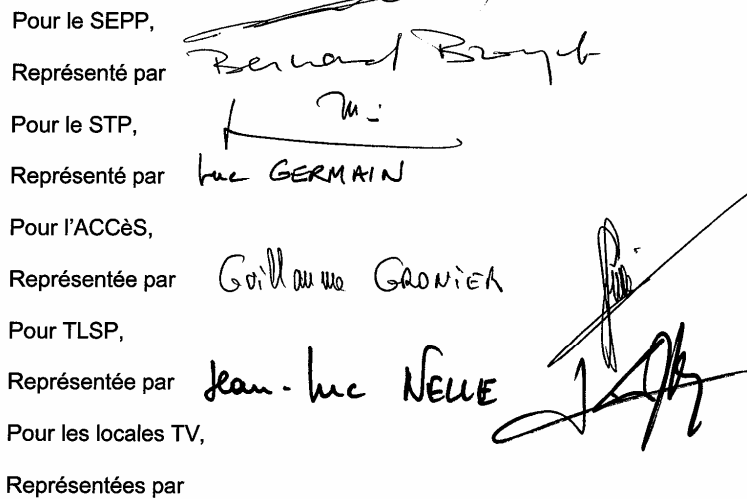 Pour le SEPP,
Représenté par Bernard
Pour le STP,
Représenté par Luc GERMAIN
Pour l'ACCèS,
Représentée par Guillaume GRONIER
Pour TLSP,
Représentée par Jean-Luc NELLE
Pour les locales TV,
Représentées par